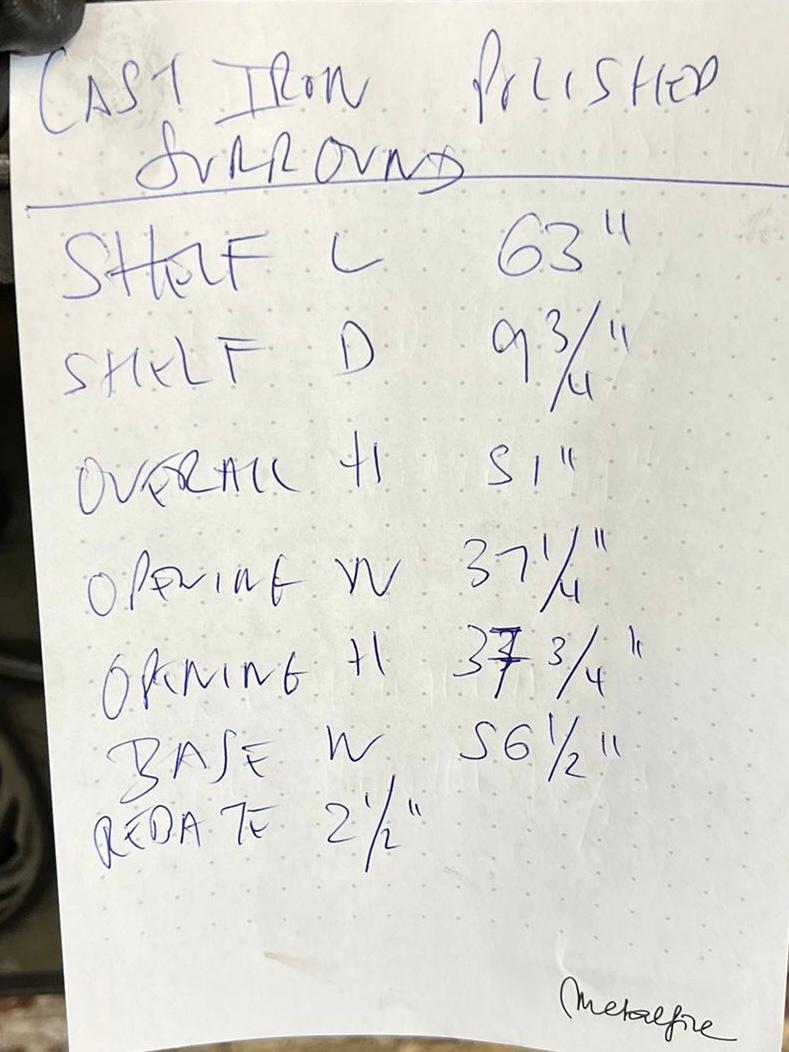 CAST IRON POLISHED
SURROUND
SHELF L 63"
SHELF D 9 3/4"
OVERALL H 51"
OPENING W 37 1/4"
OPENING H 37 3/4"
BASE W 56 1/2"
REBATE 2 1/2"
Metalfire